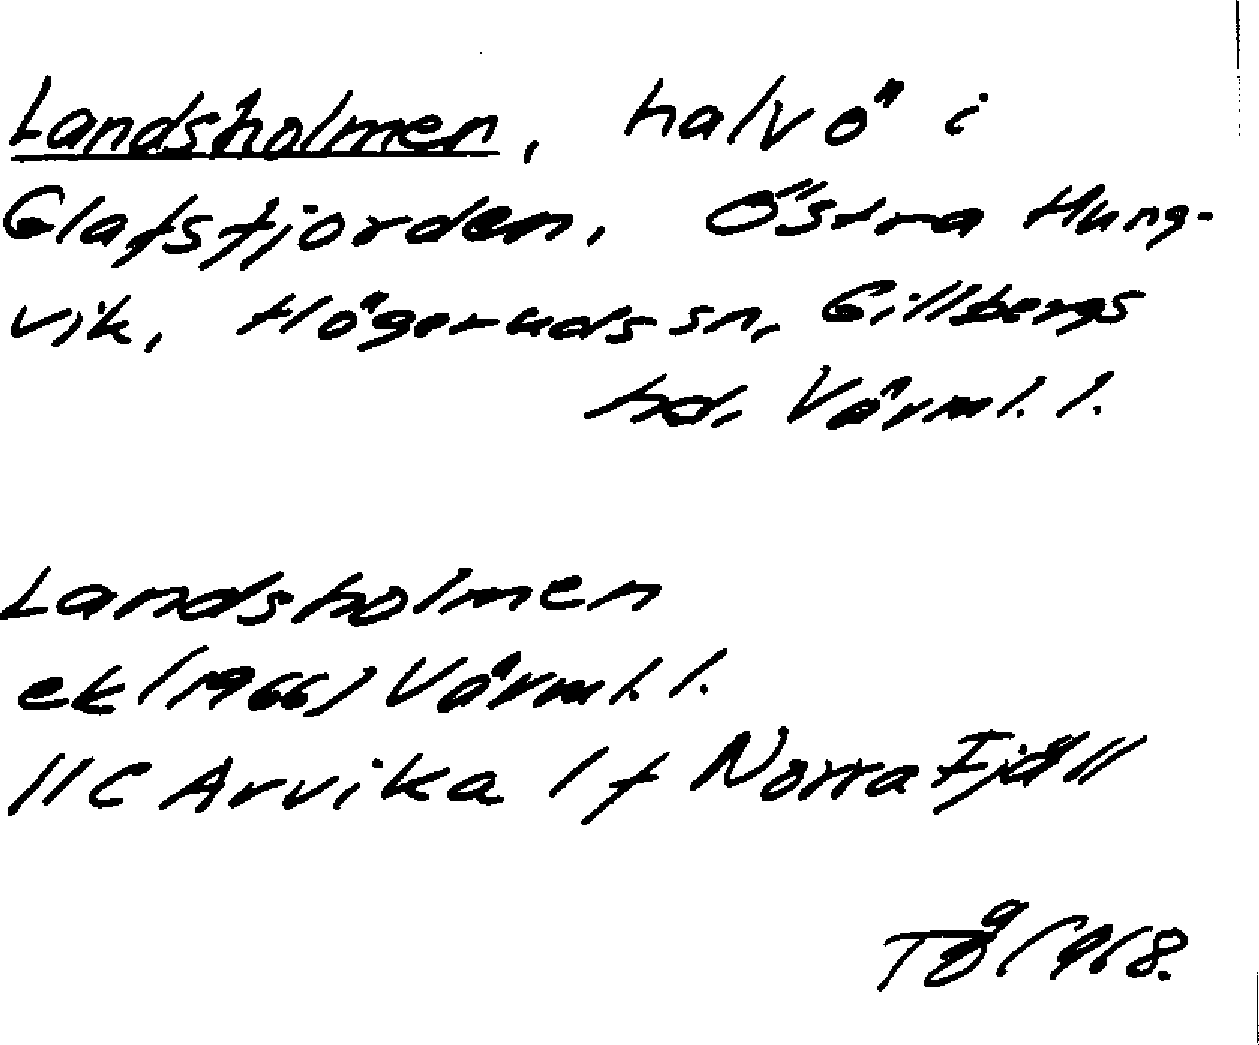 Landsholmen, halvö i
Glafsfjorden, Östra Hung-
vik, Högeruds sn, Gillbergs
hd. Värml. l.
Landsholmen
ek (1966) Värml. l.
11C Arvika 1 f Norra Fjäll
Tå 1968.